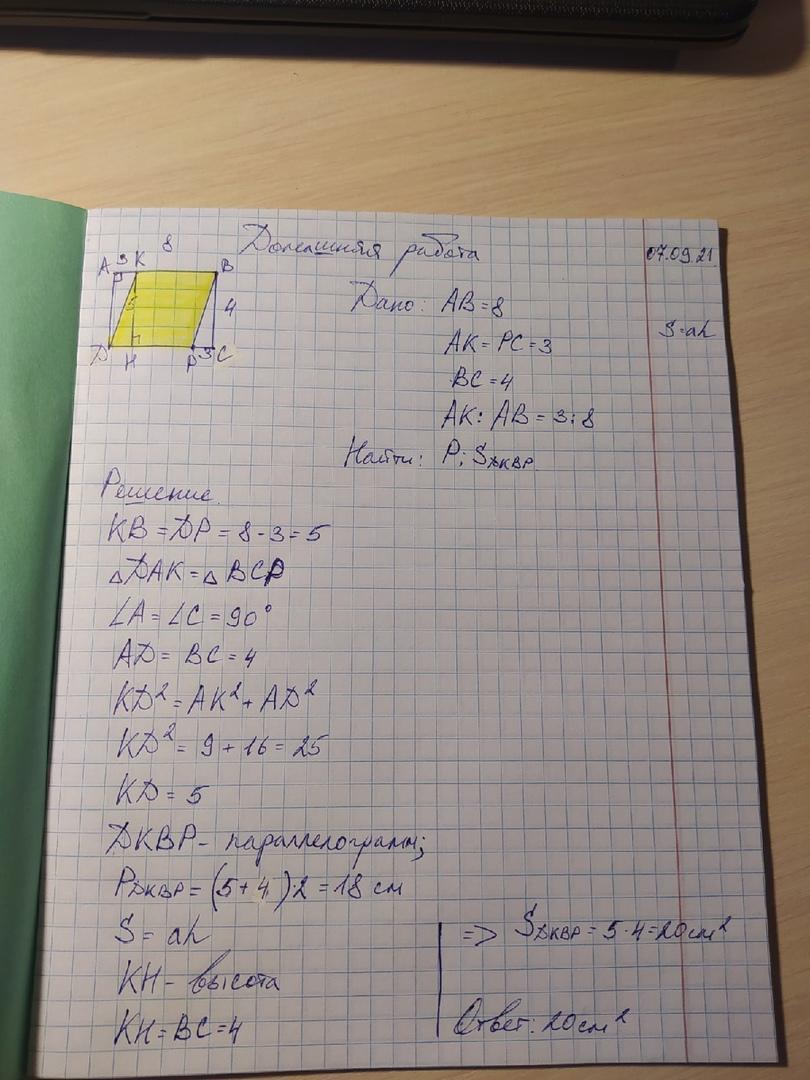 Домашняя работа
07.09.21
8
A 3 K B
5 4
D H P 3 C
Дано: AB=8
S=ah
AK=PC=3
BC=4
AK:AB=3:8
Найти: P; SDKBP
Решение.
KB=DP=8-3=5
△DAK=△BCP
∠A=∠C=90°
AD=BC=4
KD²=AK²+AD²
KD²=9+16=25
KD=5
DKBP- параллелограмм;
PDKBP=(5+4)·2=18 см
S=ah
=> SDKBP=5·4=20см²
KH- высота
KH=BC=4
Ответ: 20см²